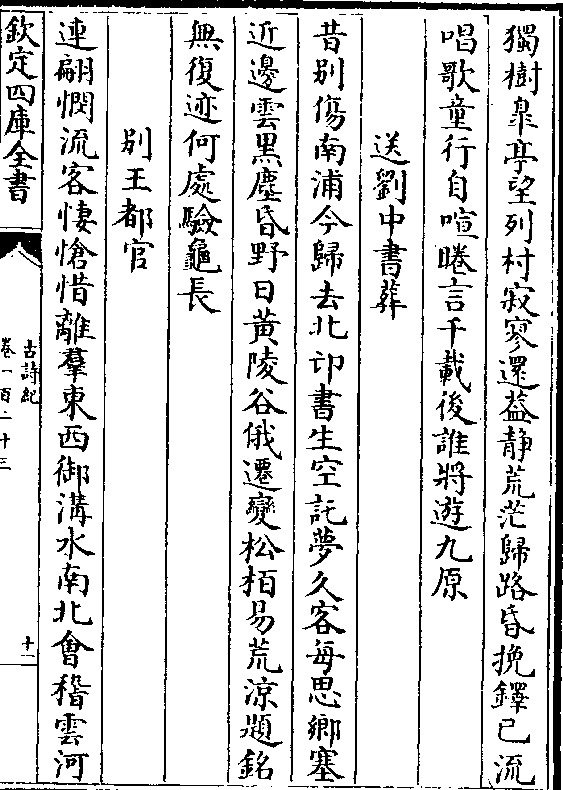 獨樹臯亭望列村寂寥還益静荒茫歸路昏挽鐸已流
唱歌童行自喧睠言千載後誰將遊九原
送劉中書葬
昔别傷南浦今歸去北邙書生空託夢久客每思鄉塞
近邊雲黒塵昏野日黄陵谷俄遷變松栢易荒涼題銘
無復迹何處驗龜長
别王都官
連翩憫流客悽愴惜離羣東西御溝水南北㑹稽雲河
欽定四庫全書
古詩紀
卷一百二十三
十一